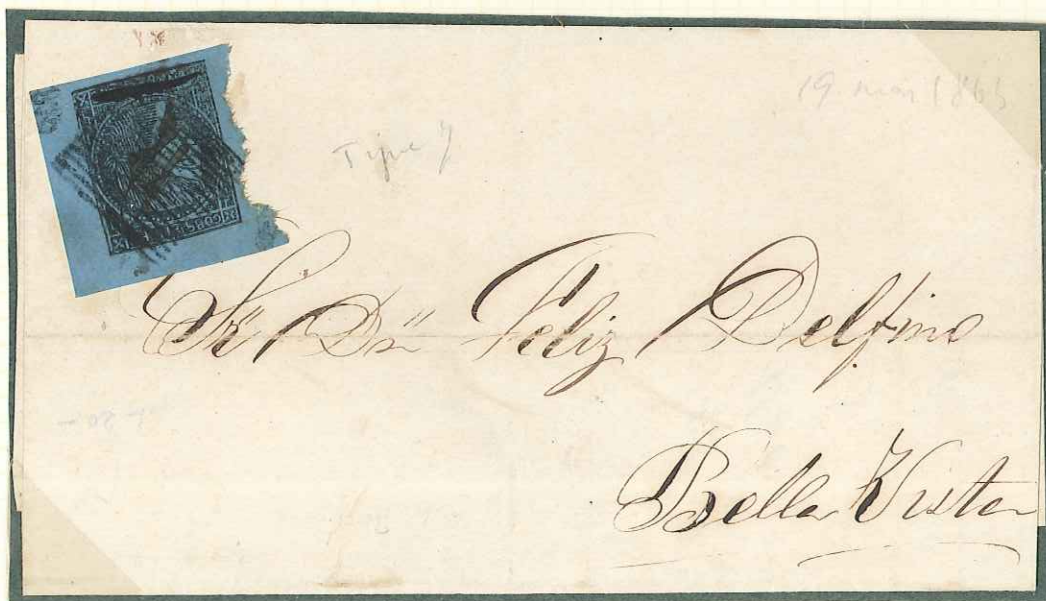 19 mar 1866
Type 7
CORREOS
Sr. Dn Feliz Delfino
Bella Vista